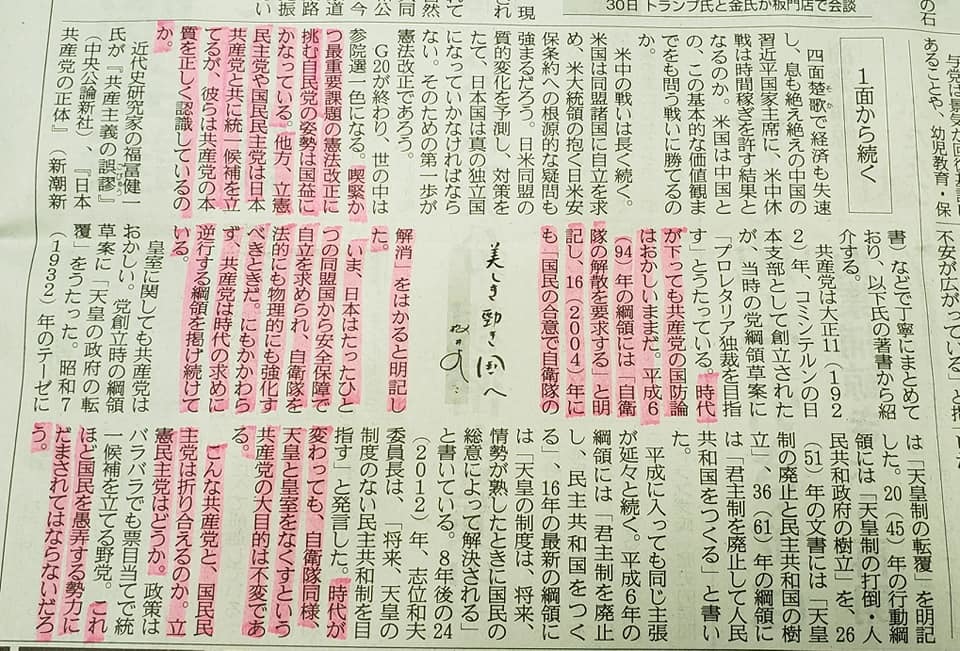 現
これ
30日 トランプ氏と金氏が板門店で会談
の石
あることや、幼児教育・保
不安が広がっている」と
1面から続く
四面楚歌で経済も失速
そか
し、息も絶え絶えの中国の
習近平国家主席に、米中休
戦は時間稼ぎを許す結果と
なるのか。米国は中国と
の、この基本的な価値観ま
でをも問う戦いに勝てるの
か。
米中の戦いは長く続く。
米国は同盟諸国に自立を求
め、米大統領の抱く日米安
保条約への根源的な疑問も
強まるだろう。日米同盟の
質的変化を予測し、対策を
たて、日本国は真の独立国
になっていかなければなら
ない。そのための第一歩が
憲法改正であろう。
G20が終わり、世の中は
参院選一色になる。喫緊か
つ最重要課題の憲法改正に
挑む自民党の姿勢は国益に
かなっている。他方、立憲
民主党や国民民主党は日本
共産党と共に統一候補を立
てるが、彼らは共産党の本
質を正しく認識しているの
か。
近代史研究家の福冨健一
氏が『共産主義の誤謬』
ごびゅう
（中央公論新社）、『日本
共産党の正体』（新潮新
書）などで丁寧にまとめて
おり、以下氏の著書から紹
介する。
共産党は大正11（192
2）年、コミンテルンの日
本支部として創立された
が、当時の党綱領草案に
「プロレタリア独裁を目指
す」とうたっている。時代
が下っても共産党の国防論
はおかしいままだ。平成6
（94）年の綱領には「自衛
隊の解散を要求する」と明
記し、16（2004）年に
も「国民の合意で自衛隊の
美しき勁き国へ
解消」をはかると明記し
た。
いま、日本はたったひと
つの同盟国から安全保障で
自立を求められ、自衛隊を
法的にも物理的にも強化す
べきときだ。にもかかわら
ず、共産党は時代の求めに
逆行する綱領を掲げ続けて
いる。
皇室に関しても共産党は
おかしい。党創立時の綱領
草案に「天皇の政府の転
覆」をうたった。昭和7
（1932）年のテーゼに
は「天皇制の転覆」を明記
した。20（45）年の行動綱
領には「天皇制の打倒・人
民共和政府の樹立」を、26
（51）年の文書には「天皇
制の廃止と民主共和国の樹
立」、36（61）年の綱領に
は「君主制を廃止して人民
共和国をつくる」と書い
た。
平成に入っても同じ主張
が延々と続く。平成6年の
綱領には「君主制を廃止
し、民主共和国をつく
る」、16年の最新の綱領に
は「天皇の制度は、将来、
情勢が熟したときに国民の
総意によって解決される」
と書いている。8年後の24
（2012）年、志位和夫
委員長は、「将来、天皇の
制度のない民主共和制を目
指す」と発言した。時代が
変わっても、自衛隊同様、
天皇と皇室をなくすという
共産党の大目的は不変であ
る。
こんな共産党と、国民民
主党は折り合えるのか。立
憲民主党はどうか。政策は
バラバラでも票目当てで統
一候補を立てる野党。これ
ほど国民を愚弄する勢力に
だまされてはならないだろ
う。